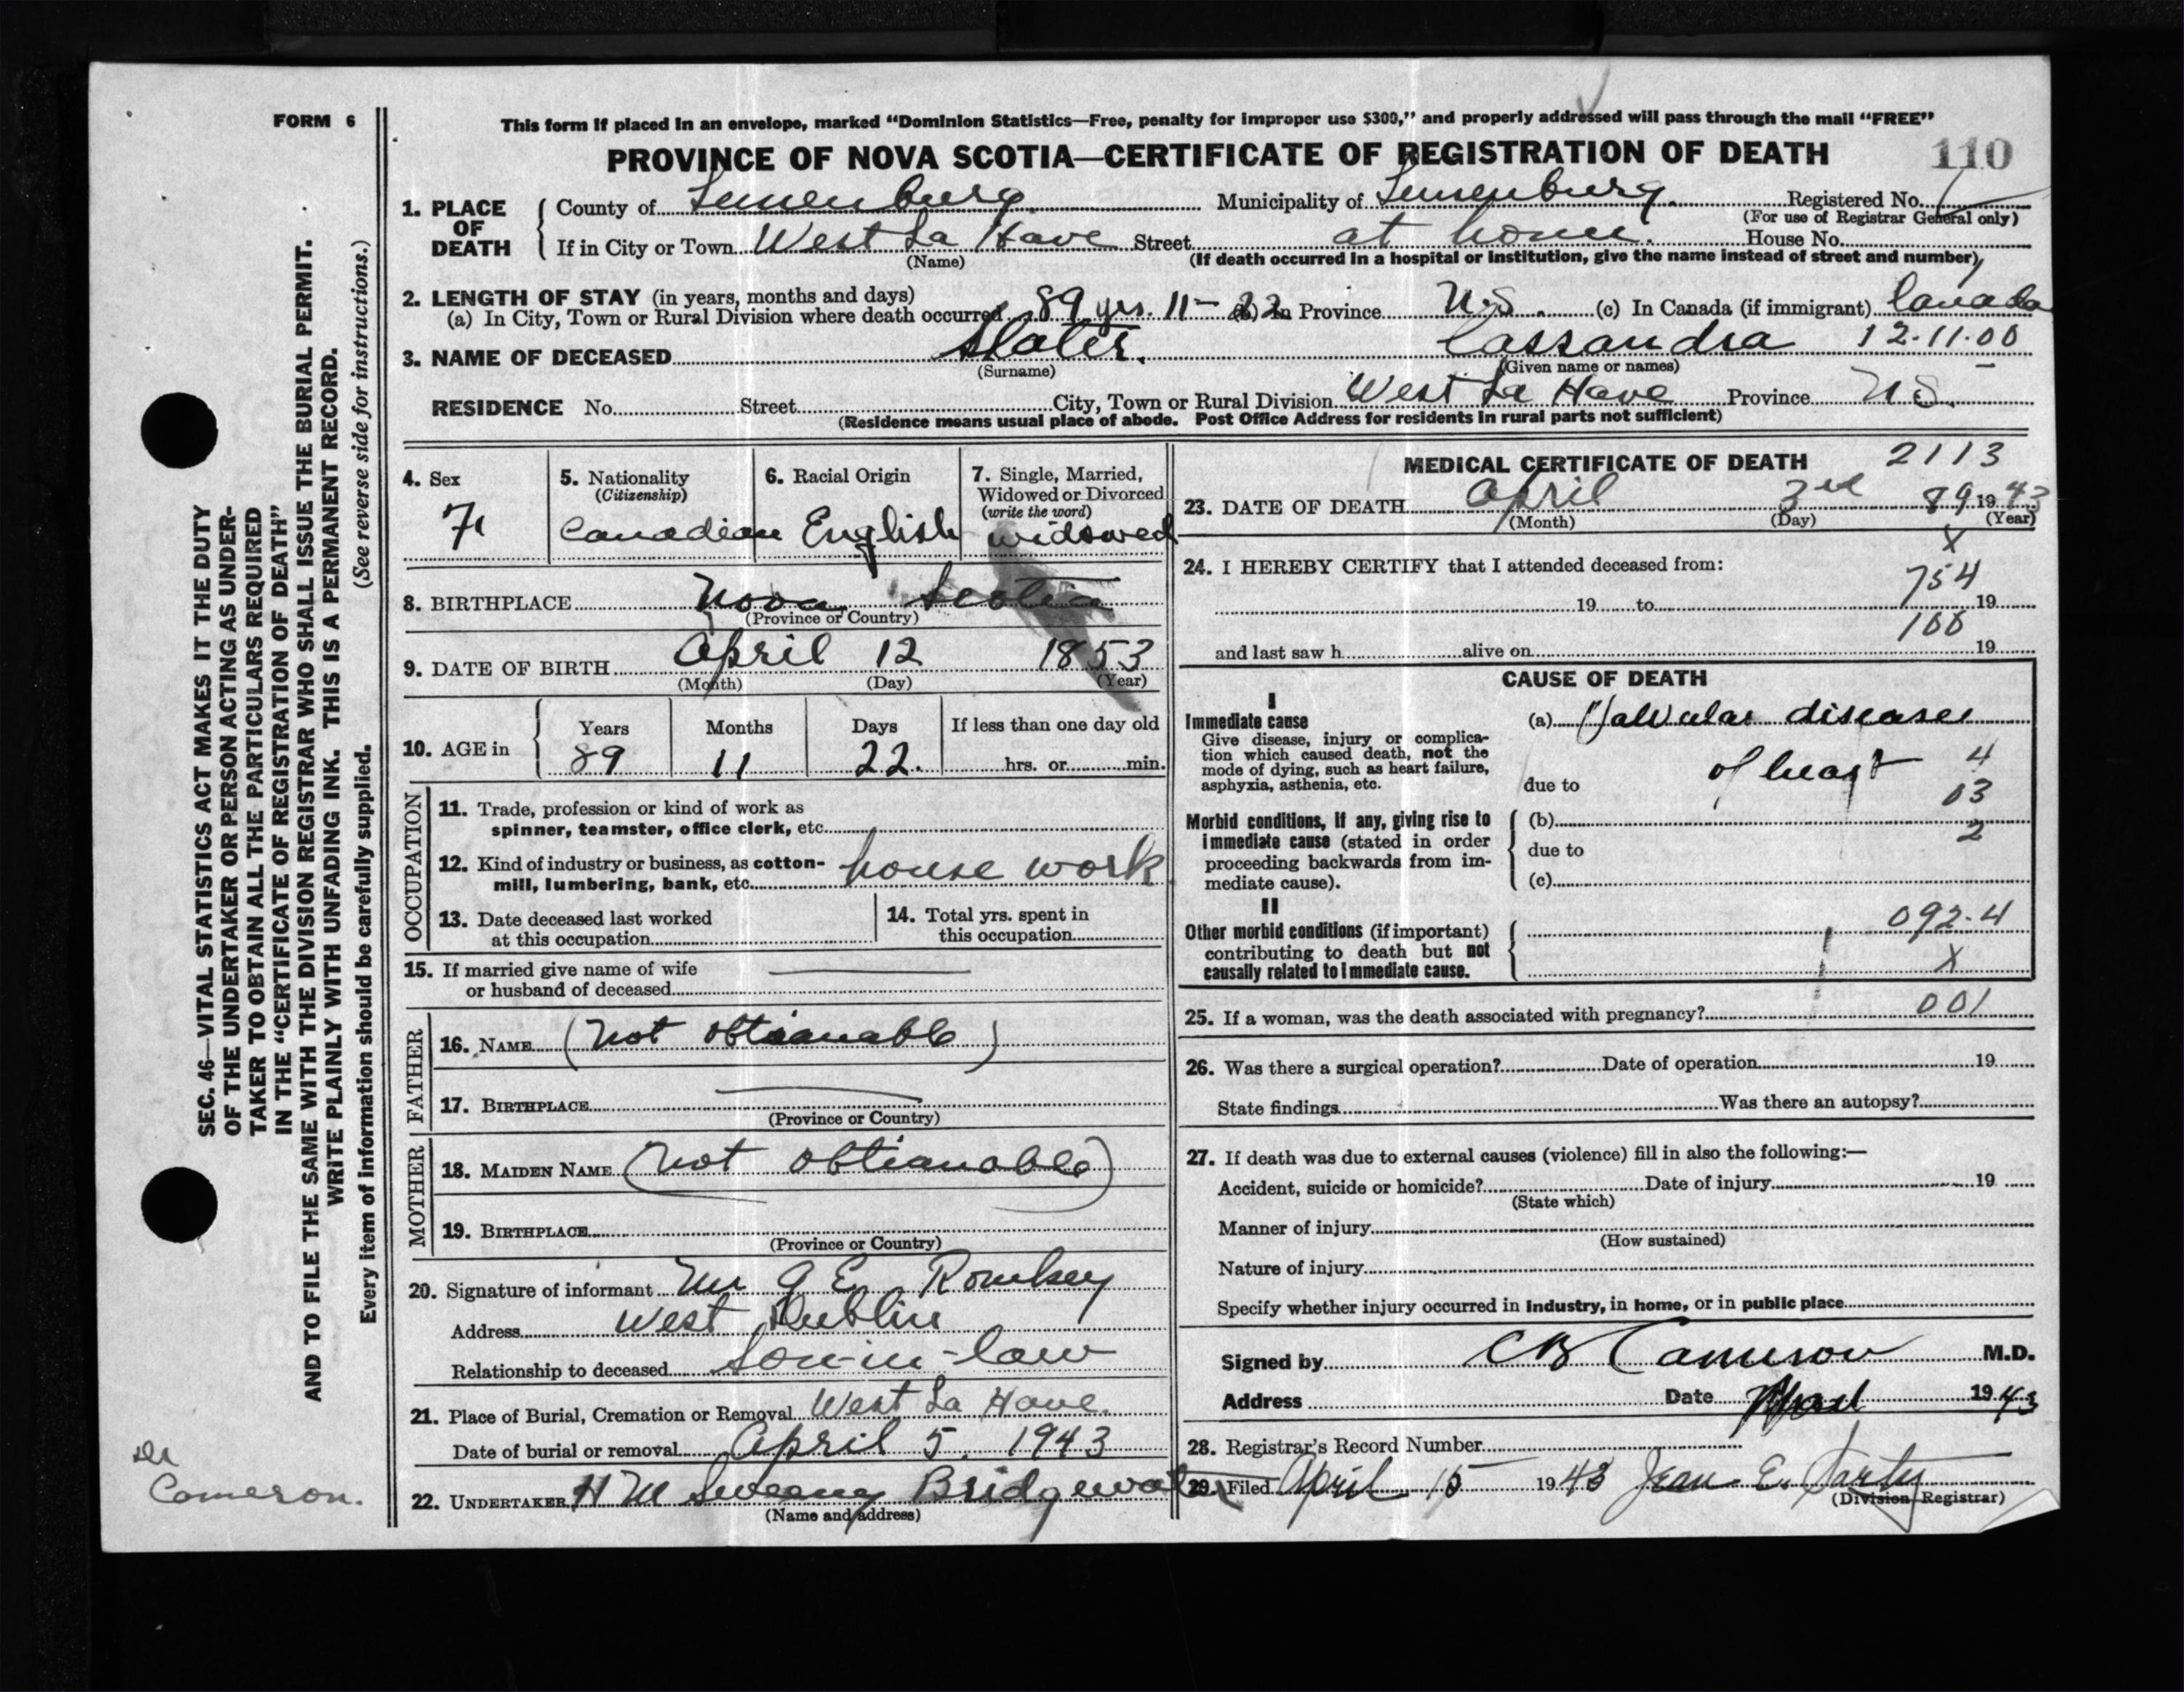 FORM 6
This form if placed in an envelope, marked “Dominion Statistics—Free, penalty for improper use $300,” and properly addressed will pass through the mail “FREE”
PROVINCE OF NOVA SCOTIA—CERTIFICATE OF REGISTRATION OF DEATH 110
1. PLACE OF DEATH County of Lunenburg Municipality of Lunenburg. Registered No.
(For use of Registrar General only)
If in City or Town West La Have Street at home. House No.
(Name) (If death occurred in a hospital or institution, give the name instead of street and number)
2. LENGTH OF STAY (in years, months and days)
(a) In City, Town or Rural Division where death occurred 89 yrs. 11 - 22 (b) In Province N.S. (c) In Canada (if immigrant) Canada
3. NAME OF DECEASED Slater. Cassandra 12-11-00
(Surname) (Given name or names)
RESIDENCE No. Street City, Town or Rural Division West La Have Province N.S.
(Residence means usual place of abode. Post Office Address for residents in rural parts not sufficient)
4. Sex
F
5. Nationality
(Citizenship)
Canadian
6. Racial Origin
English
7. Single, Married,
Widowed or Divorced
(write the word)
widowed
8. BIRTHPLACE Nova Scotia
(Province or Country)
9. DATE OF BIRTH April 12 1853
(Month) (Day) (Year)
10. AGE in Years Months Days If less than one day old
89 11 22. hrs. or min.
OCCUPATION
11. Trade, profession or kind of work as
spinner, teamster, office clerk, etc.
12. Kind of industry or business, as cotton-
mill, lumbering, bank, etc. house work
13. Date deceased last worked
at this occupation
14. Total yrs. spent in
this occupation
15. If married give name of wife
or husband of deceased
FATHER
16. NAME (not obtianable)
17. BIRTHPLACE
(Province or Country)
MOTHER
18. MAIDEN NAME (not obtianable)
19. BIRTHPLACE
(Province or Country)
20. Signature of informant Mr G E. Romkey
Address West Dublin
Relationship to deceased Son-in-law
21. Place of Burial, Cremation or Removal West La Have.
Date of burial or removal April 5. 1943
22. UNDERTAKER H M Sweeny Bridgewater
(Name and address)
MEDICAL CERTIFICATE OF DEATH 2113
23. DATE OF DEATH April 3rd 89 1943
(Month) (Day) (Year)
X
24. I HEREBY CERTIFY that I attended deceased from:
754
19 to 19
100
and last saw h alive on 19
CAUSE OF DEATH
I
Immediate cause
Give disease, injury or complica-
tion which caused death, not the
mode of dying, such as heart failure,
asphyxia, asthenia, etc.
(a) Valvular disease
due to of heart 4
03
Morbid conditions, if any, giving rise to
immediate cause (stated in order
proceeding backwards from im-
mediate cause).
(b) 2
due to
(c)
II
Other morbid conditions (if important)
contributing to death but not
causally related to immediate cause.
092-4
X
25. If a woman, was the death associated with pregnancy? 001
26. Was there a surgical operation? Date of operation 19
State findings Was there an autopsy?
27. If death was due to external causes (violence) fill in also the following:—
Accident, suicide or homicide? Date of injury 19
(State which)
Manner of injury
(How sustained)
Nature of injury
Specify whether injury occurred in industry, in home, or in public place
Signed by C B Cameron M.D.
Address Date 1943
28. Registrar's Record Number
29. Filed April 15 1943 Jean E.
(Division Registrar)
SEC. 46—VITAL STATISTICS ACT MAKES IT THE DUTY
OF THE UNDERTAKER OR PERSON ACTING AS UNDER-
TAKER TO OBTAIN ALL THE PARTICULARS REQUIRED
IN THE “CERTIFICATE OF REGISTRATION OF DEATH”
AND TO FILE THE SAME WITH THE DIVISION REGISTRAR WHO SHALL ISSUE THE BURIAL PERMIT.
WRITE PLAINLY WITH UNFADING INK. THIS IS A PERMANENT RECORD.
Every item of information should be carefully supplied. (See reverse side for instructions.)
Dr
Cameron.